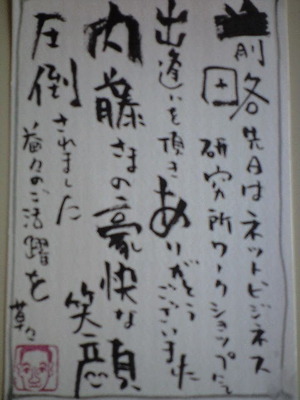 前略 先日はネットビジネス
研究所ワークショップにて
出逢いを頂きありがとう
ございました
内藤さまの豪快な
笑顔
圧倒されました
益々のご活躍を
草々